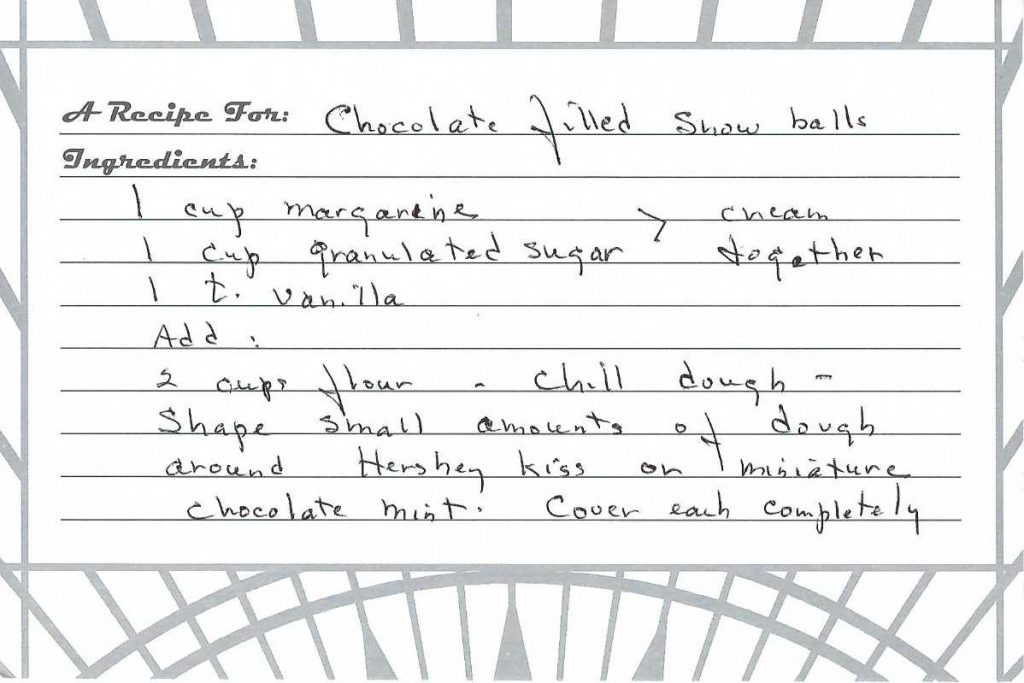 A Recipe For: Chocolate filled Snow balls
Ingredients:
1 cup margarine > cream
1 cup granulated sugar together
1 t. vanilla
Add :
2 cups flour - chill dough -
Shape small amounts of dough
around Hershey kiss or miniature
chocolate mint. Cover each completely